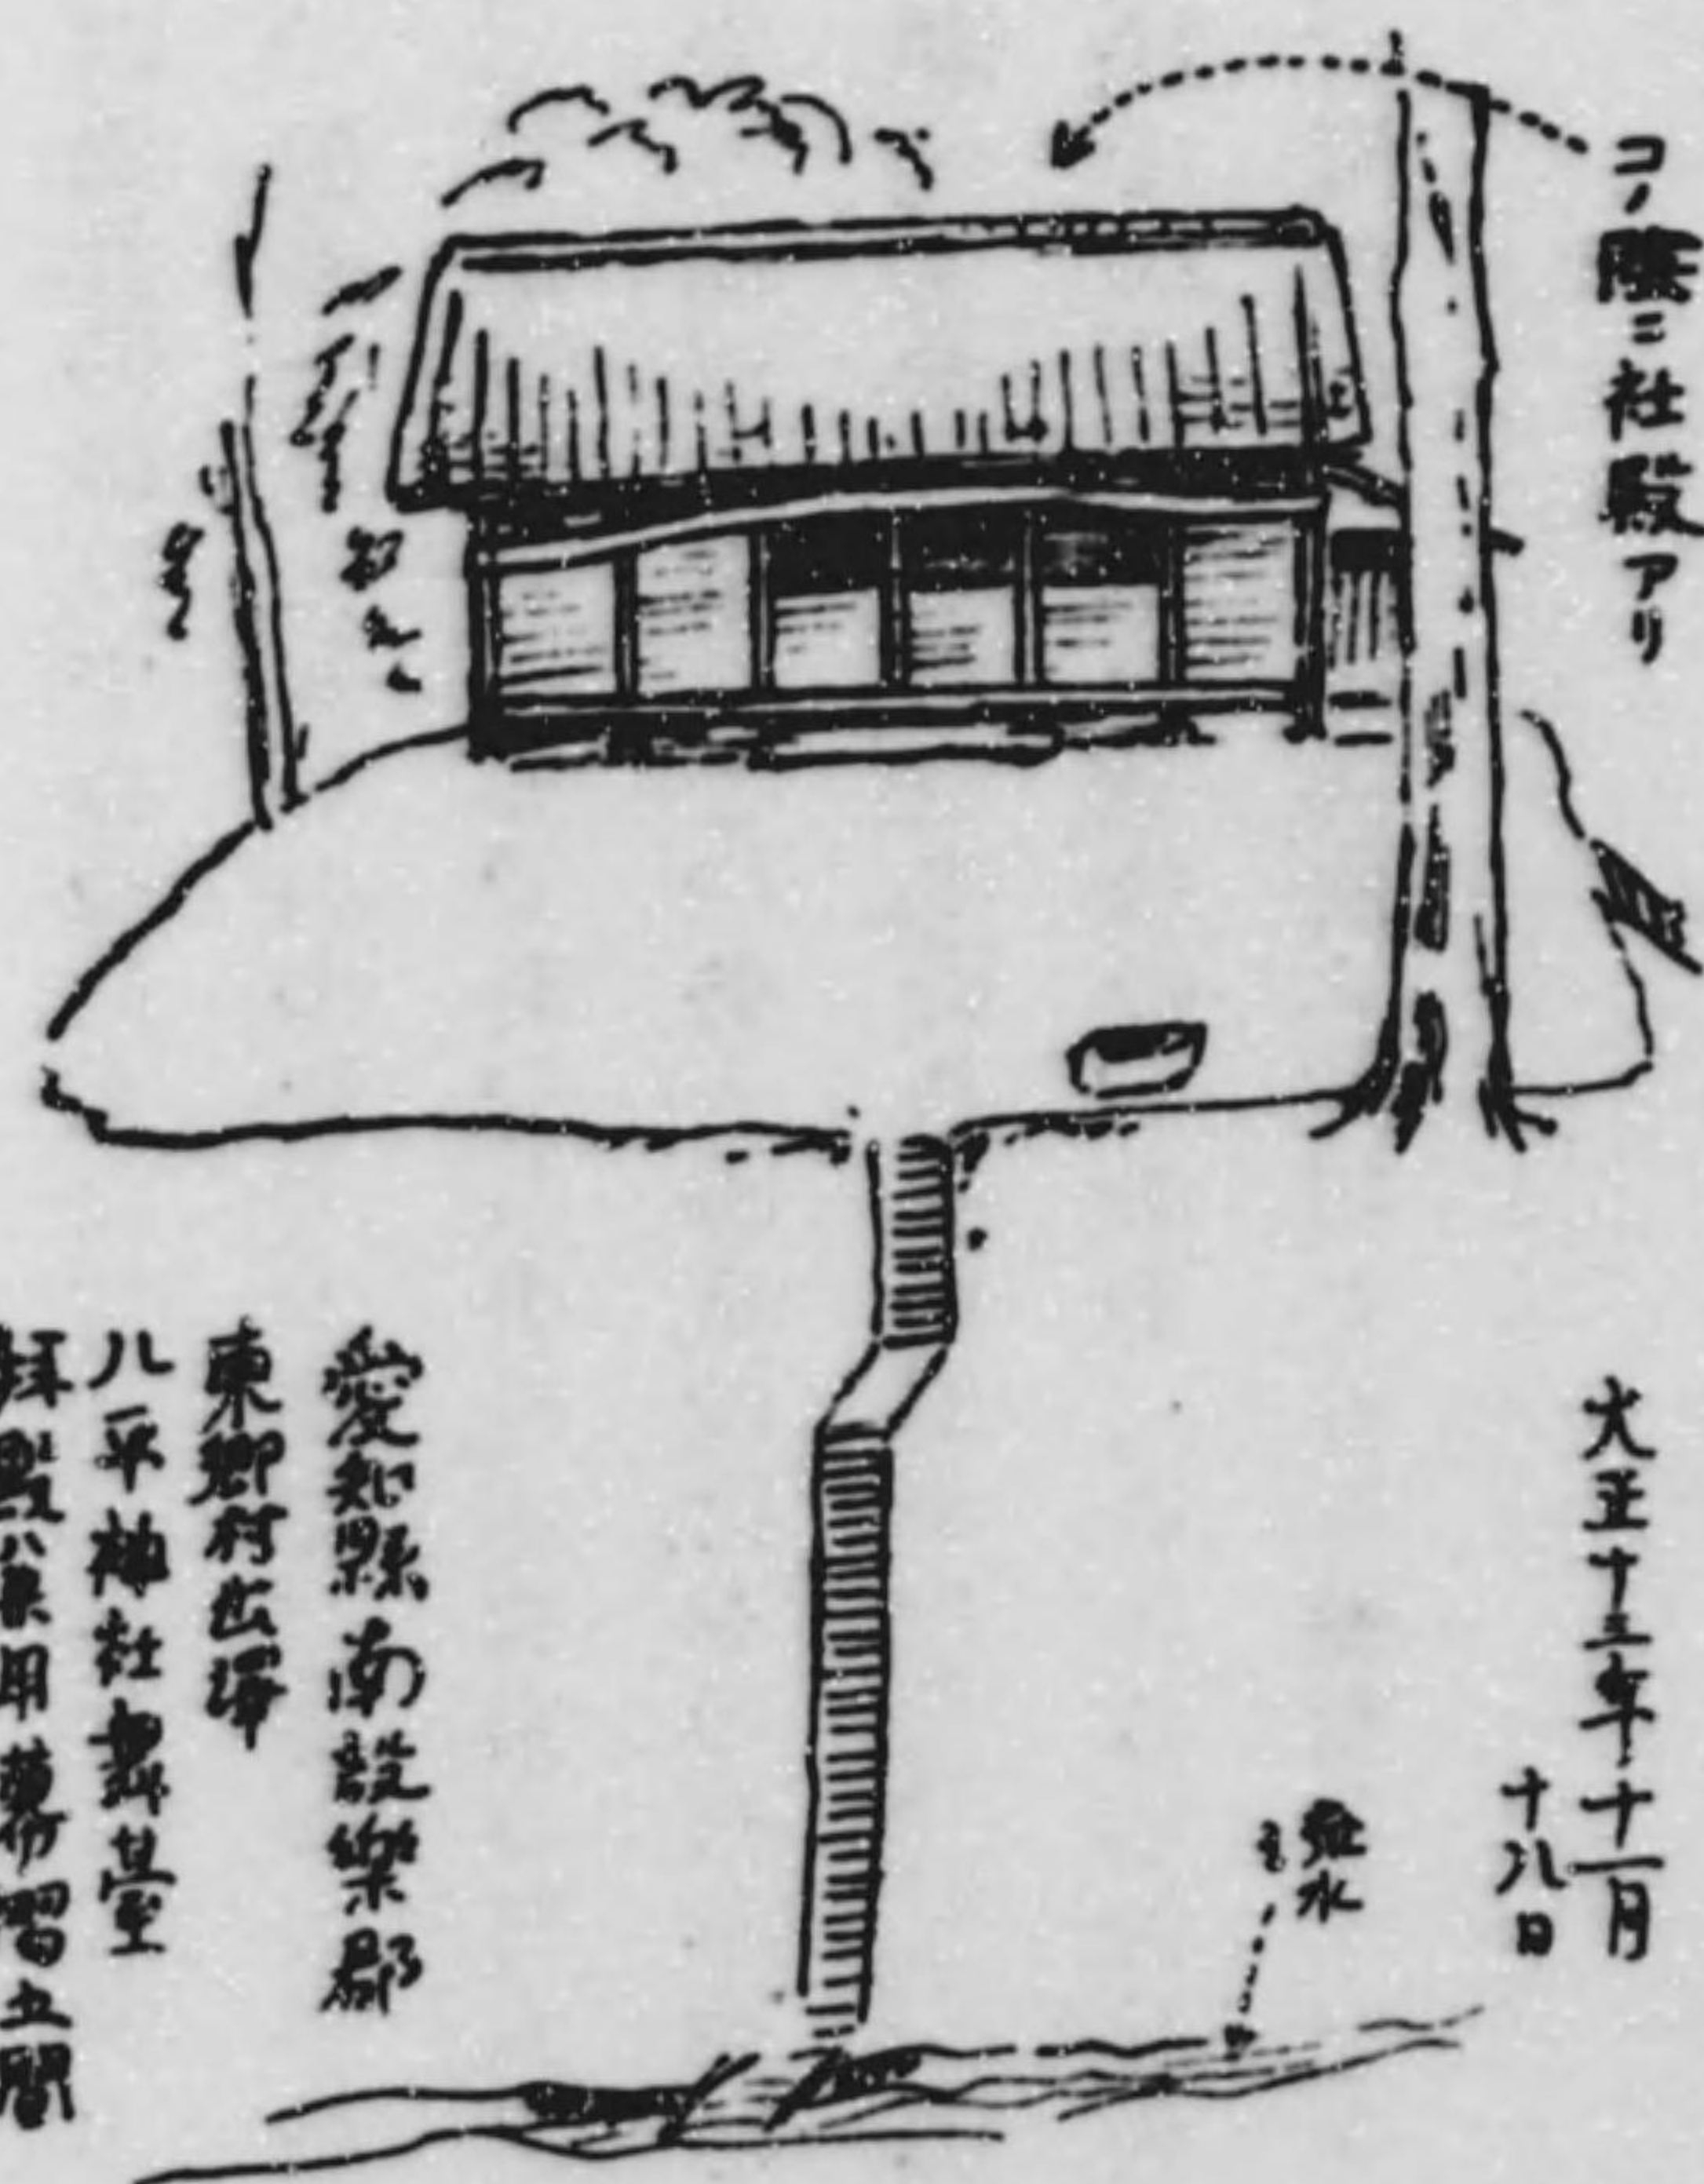 コノ陰ニ社殿アリ
大正十三年十一月
十八日
愛知縣南設樂郡
東郷村出澤
八平神社舞臺
拝殿ハ兼用 間